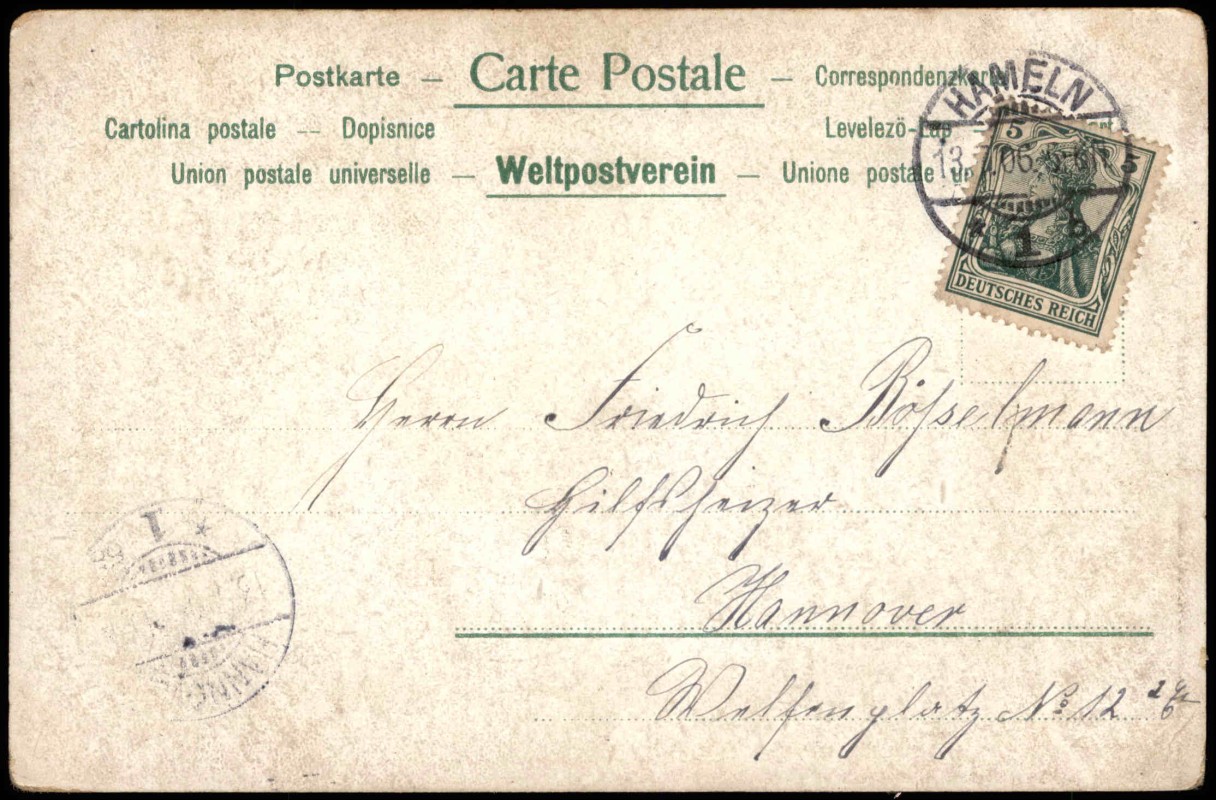 Postkarte — Carte Postale — Correspondenzkarte
Cartolina postale — Dopisnice
Levelezö-Lap —
Union postale universelle — Weltpostverein — Unione postale
HAMELN
13. 06.
* 1 b
5 5
DEUTSCHES REICH
Herrn Friedrich Bößselmann
Hilfsheizer
Hannover
Welfenplatz No 12
* 1
HANNO